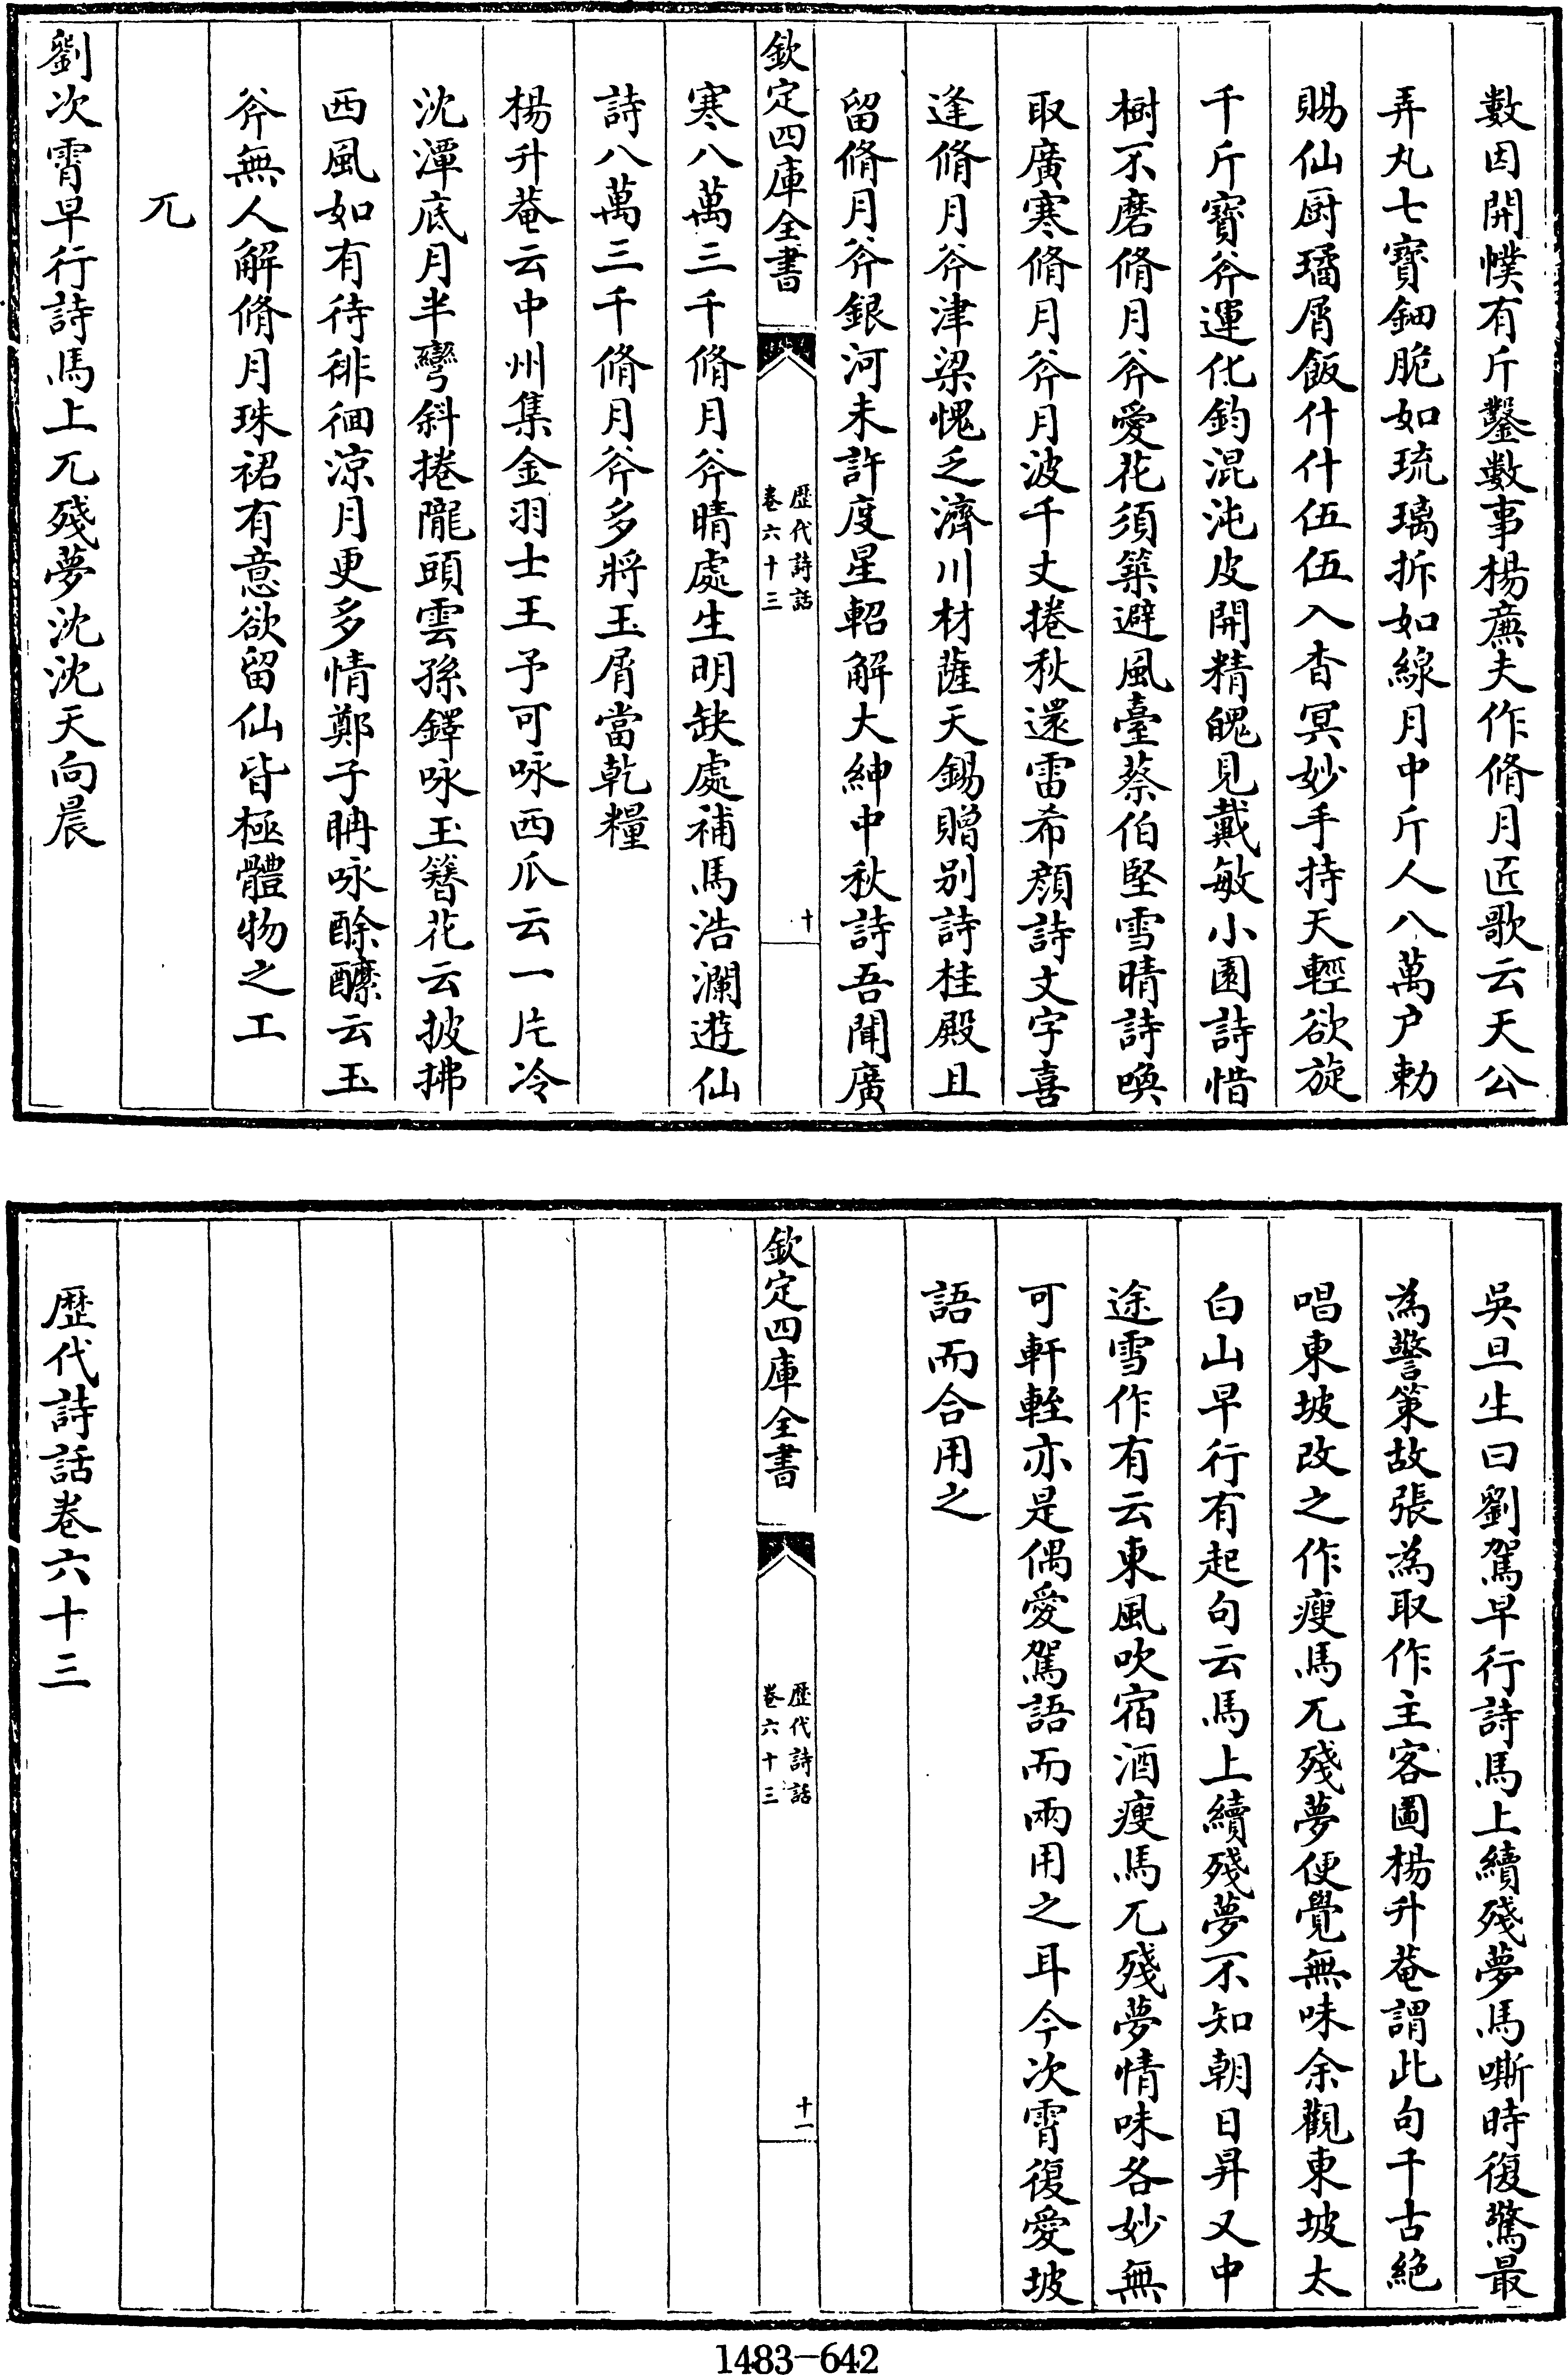 數因開幞有斤鑿數事楊廉夫作脩月匠歌云天公
弄丸七寶鈿脆如琉璃拆如線月中斤人八萬户勅
賜仙厨璚屑飯什什伍伍入杳冥妙手持天輕欲旋
千斤寶斧運化鈞混沌皮開精魄見戴敏小園詩惜
樹不磨脩月斧愛花須築避風臺蔡伯堅雪晴詩喚
取廣寒脩月斧月波千丈捲秋還雷希顔詩文字喜
逢脩月斧津梁愧乏濟川材薩天錫贈别詩桂殿且
留脩月斧銀河未許度星軺解大紳中秋詩吾聞廣
欽定四庫全書
歴代詩話
卷六十三
十
寒八萬三千脩月斧晴處生明缺處補馬浩瀾遊仙
詩八萬三千脩月斧多將玉屑當乾糧
楊升菴云中州集金羽士王予可咏西瓜云一片冷
沈潭底月半彎斜捲隴頭雲孫鐸咏玉簪花云披拂
西風如有待徘徊凉月更多情鄭子聃咏酴醾云玉
斧無人解脩月珠裙有意欲留仙皆極體物之工
兀
劉次霄早行詩馬上兀殘夢沈沈天向晨
吳旦生曰劉駕早行詩馬上續殘夢馬嘶時復驚最
為警策故張為取作主客圖楊升菴謂此句千古絶
唱東坡改之作瘦馬兀殘夢便覺無味余觀東坡太
白山早行有起句云馬上續殘夢不知朝日昇又中
途雪作有云東風吹宿酒瘦馬兀殘夢情味各妙無
可軒輊亦是偶愛駕語而兩用之耳今次霄復愛坡
語而合用之
欽定四庫全書
歴代詩話
卷六十三
十一
歴代詩話卷六十三
1483-642